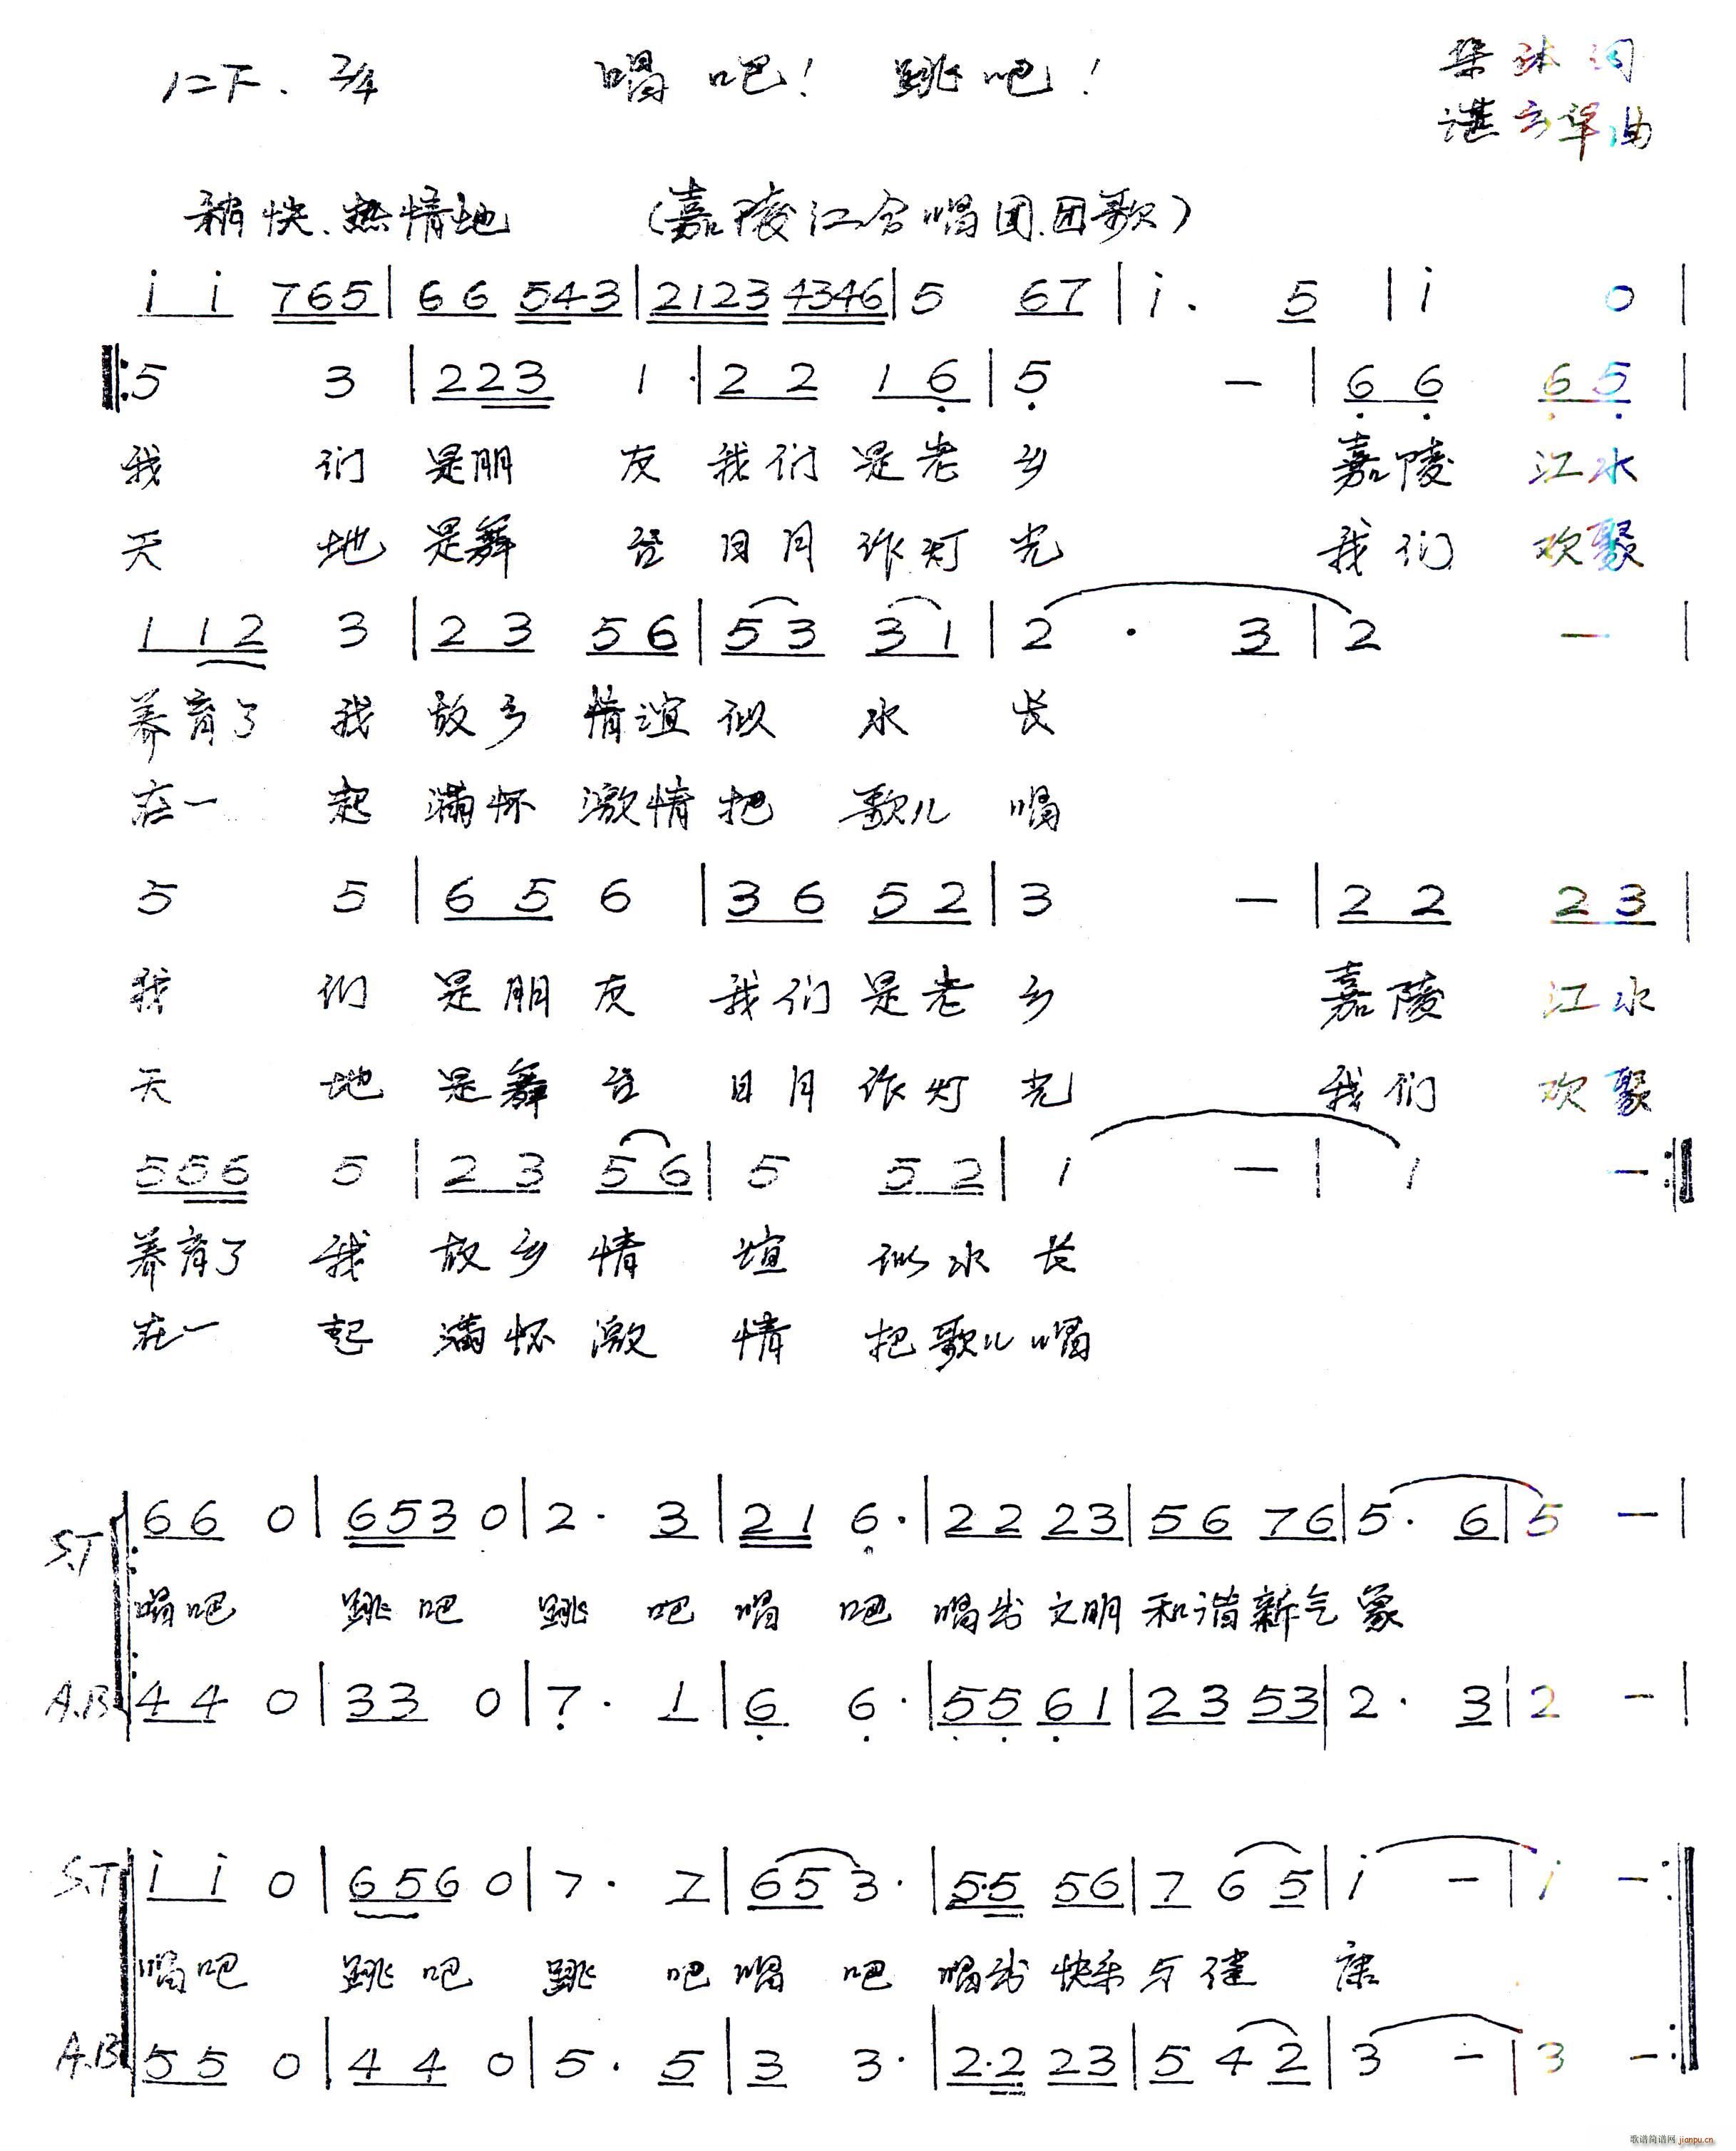 1=F. 2/4 唱吧! 跳吧! 词
谌 曲
稍快.热情地 (嘉陵江合唱团.团歌)
i i 765 | 66 543 | 2123 4346 | 5 67 | i. 5 | i 0 |
‖: 5 3 | 223 1. | 22 16 | 5 - | 66 65 |
我们是朋友我们是老乡 嘉陵江水
天地是舞台日月作灯光 我们欢聚
112 3 | 23 56 | 53 31 | 2. 3 | 2 - |
养育了我故乡情谊似水长
在一起满怀激情把歌儿唱
5 5 | 65 6 | 36 52 | 3 - | 22 23 |
我们是朋友我们是老乡 嘉陵江水
天地是舞台日月作灯光 我们欢聚
556 5 | 23 56 | 5 52 | 1 - | 1 - :‖
养育了我故乡情谊似水长
在一起满怀激情把歌儿唱
S.T 66 0 | 653 0 | 2. 3 | 21 6. | 22 23 | 56 76 | 5. 6 | 5 - |
唱吧 跳吧 跳吧唱吧唱出文明和谐新气象
A.B 44 0 | 33 0 | 7. 1 | 6 6. | 55 61 | 23 53 | 2. 3 | 2 - |
S.T i i 0 | 656 0 | 7. 7 | 65 3. | 5.5 56 | 7 65 | i - | i - :‖
唱吧 跳吧 跳吧唱吧唱出快乐与健康
A.B 55 0 | 44 0 | 5. 5 | 3 3. | 2.2 23 | 5 42 | 3 - | 3 - :‖
歌谱简谱网 jianpu.cn